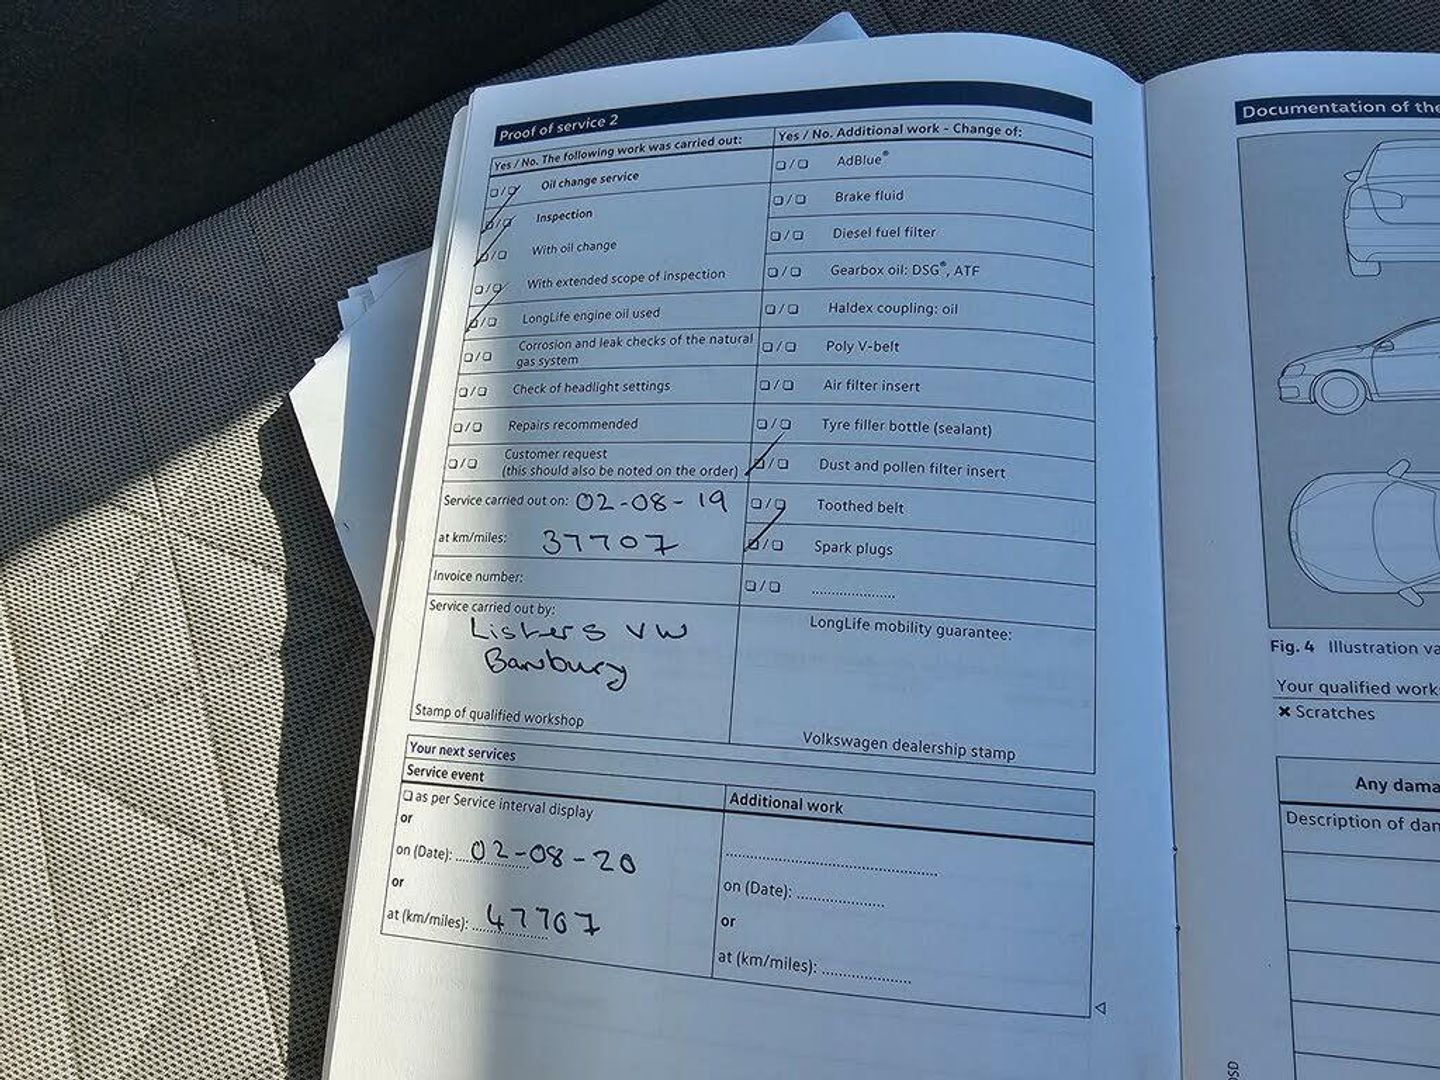 Proof of service 2
Yes / No. The following work was carried out:
❏ / ❏ Oil change service
❏ / ❏ Inspection
❏ / ❏ With oil change
❏ / ❏ With extended scope of inspection
❏ / ❏ LongLife engine oil used
❏ / ❏ Corrosion and leak checks of the natural
gas system
❏ / ❏ Check of headlight settings
❏ / ❏ Repairs recommended
❏ / ❏ Customer request
(this should also be noted on the order)
Service carried out on: 02-08-19
at km/miles: 37707
Invoice number:
Service carried out by:
Listers VW
Banbury
Stamp of qualified workshop
Yes / No. Additional work - Change of:
❏ / ❏ AdBlue®
❏ / ❏ Brake fluid
❏ / ❏ Diesel fuel filter
❏ / ❏ Gearbox oil: DSG®, ATF
❏ / ❏ Haldex coupling: oil
❏ / ❏ Poly V-belt
❏ / ❏ Air filter insert
❏ / ❏ Tyre filler bottle (sealant)
❏ / ❏ Dust and pollen filter insert
❏ / ❏ Toothed belt
❏ / ❏ Spark plugs
❏ / ❏ .....................
LongLife mobility guarantee:
Volkswagen dealership stamp
Your next services
Service event
❏ as per Service interval display
or
on (Date): 02-08-20
or
at (km/miles): 47707
Additional work
.....................................................
on (Date): ......................
or
at (km/miles): ......................
Documentation of the
Fig. 4 Illustration
Your qualified
✖ Scratches
Any
Description of